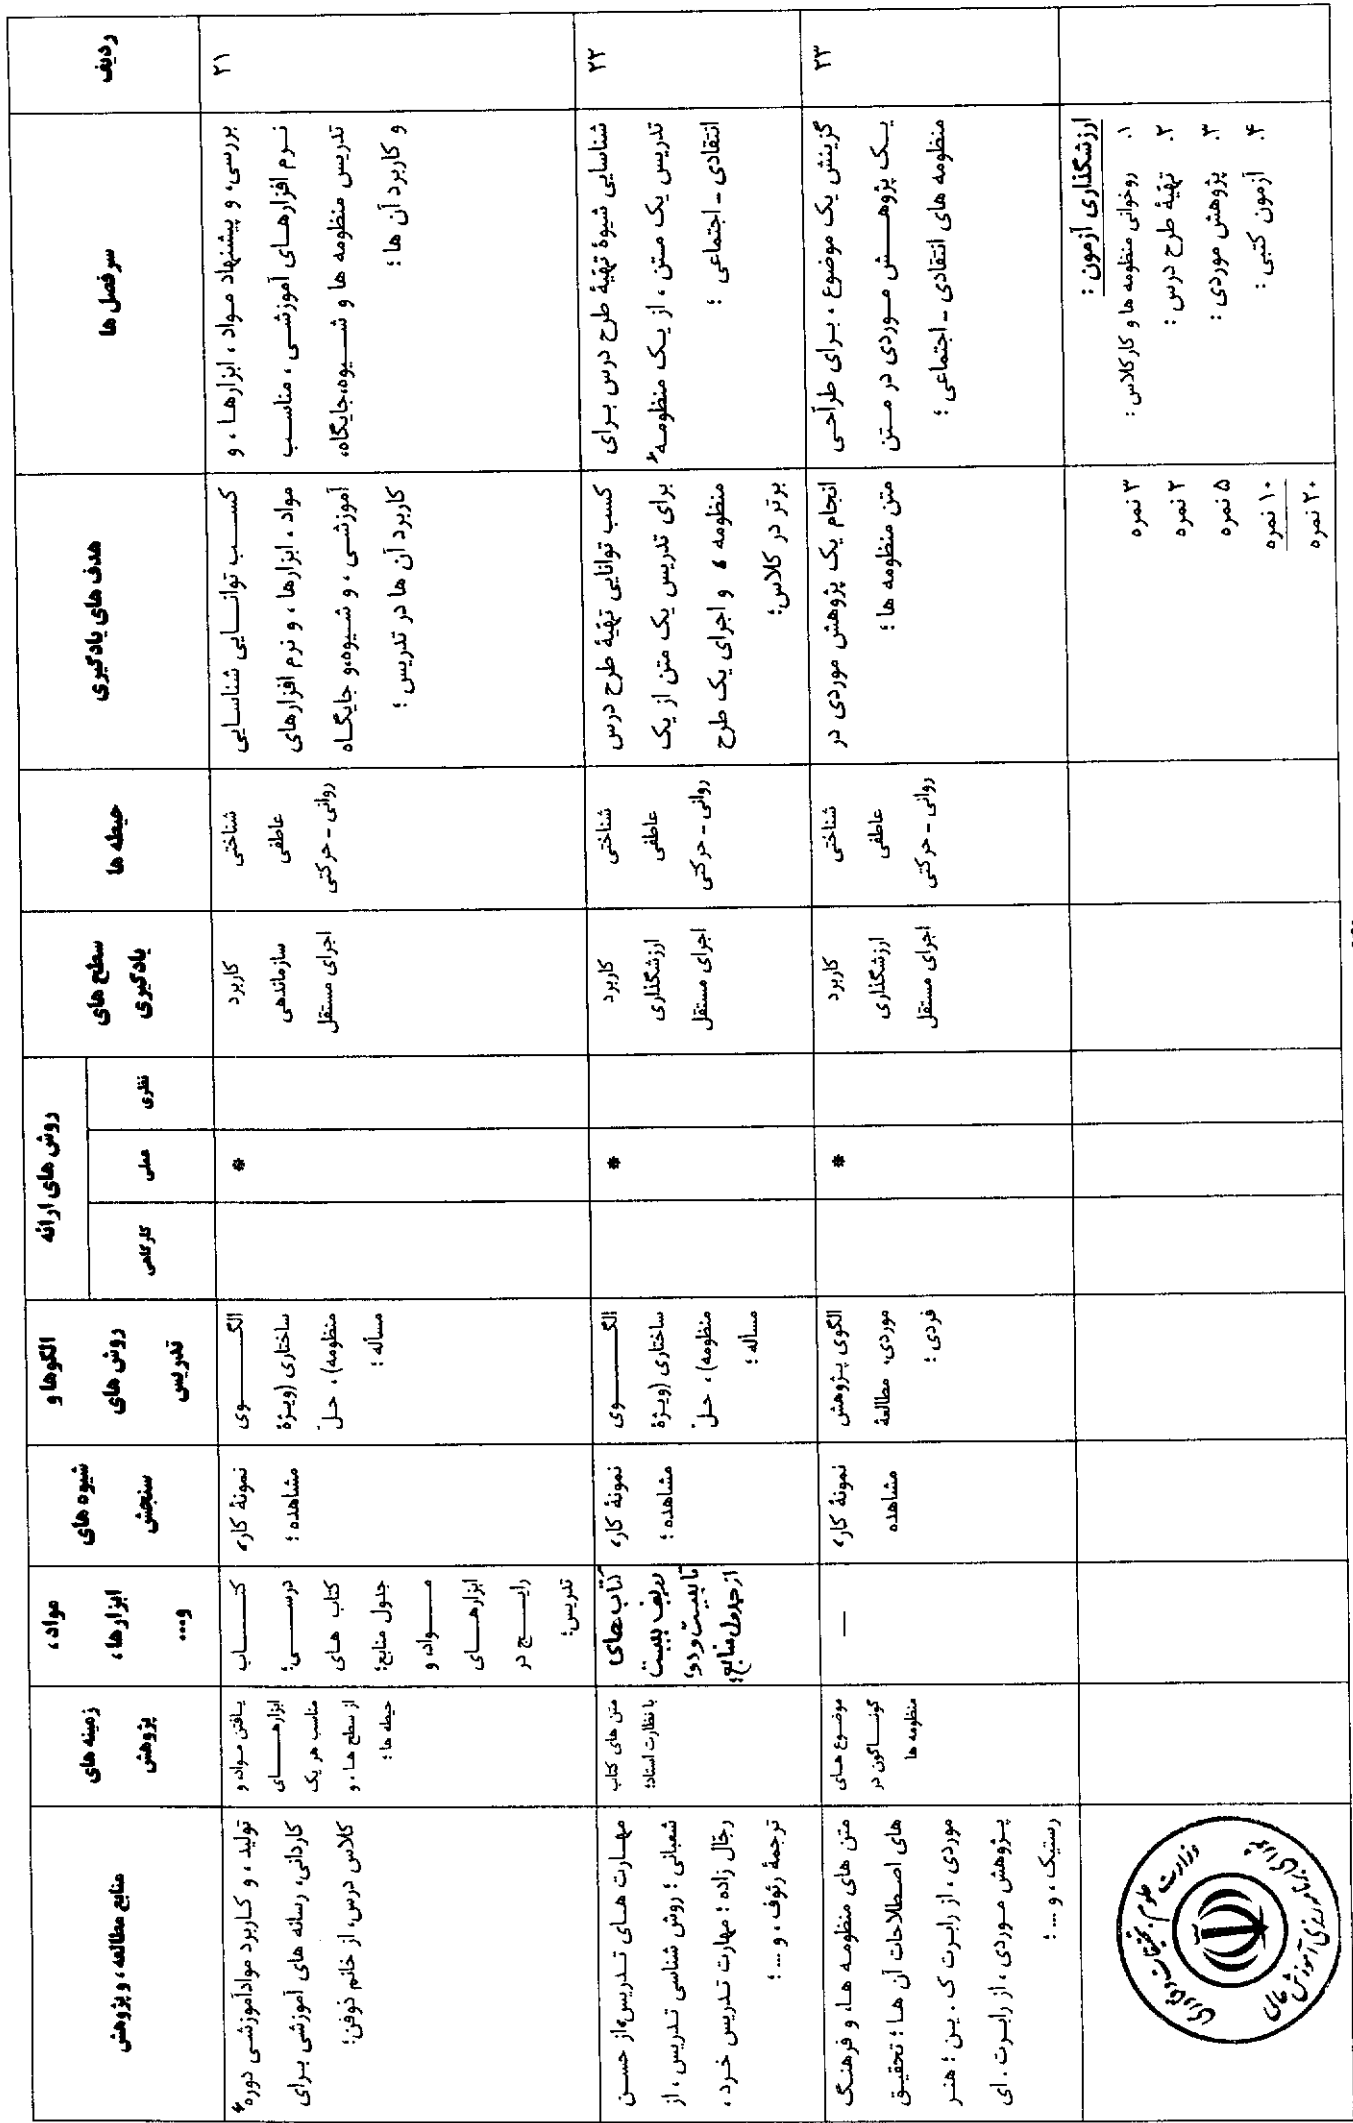 ردیف
سرفصل ها
هدف های یادگیری
حیطه ها
سطح های
یادگیری
روش های ارائه
نظری
عملی
کارگاهی
الگوها و
روش های
تدریس
شیوه های
سنجش
مواد،
ابزارها،
و...
زمینه های
پژوهش
منابع مطالعه، و پژوهش
۲۱
بررسی، و پیشنهاد مواد، ابزارها، و
نرم افزارهای آموزشی، مناسب
تدریس منظومه ها و شیوه،جایگاه،
و کاربرد آن ها؛
کسب توانایی شناسایی
مواد، ابزارها، و نرم افزارهای
آموزشی، و شیوه،و جایگاه
کاربرد آن ها در تدریس؛
شناختی
عاطفی
روانی - حرکتی
کاربرد
سازماندهی
اجرای مستقل
*
الگوی
ساختاری (ویژۀ
منظومه)، حلّ
مسأله؛
نمونۀ کار،
مشاهده؛
کتاب
درسی؛
کتاب های
جدول منابع؛
مواد، و
ابزارهای
رایج در
تدریس؛
یافتن مواد، و
ابزارهای
مناسب هر یک
از سطح ها، و
حیطه ها؛
تولید، و کاربرد موادآموزشی دوره
کاردانی، رسانه های آموزشی برای
کلاس درس، از خانم ذوفن؛
۲۲
شناسایی شیوۀ تهیۀ طرح درس برای
تدریس یک متن، از یک منظومه
انتقادی - اجتماعی؛
کسب توانایی تهیۀ طرح درس
برای تدریس یک متن از یک
منظومه، و اجرای یک طرح
برتر در کلاس؛
شناختی
عاطفی
روانی - حرکتی
کاربرد
ارزشگذاری
اجرای مستقل
*
الگوی
ساختاری (ویژۀ
منظومه)، حلّ
مسأله؛
نمونۀ کار،
مشاهده؛
کتاب های
ردیف بیست
تا بیست و دو،
از جدول منابع؛
متن های کتاب
با نظارت استاد؛
مهارت های تدریس،از حسن
شعبانی؛ روش شناسی تدریس، از
رجّال زاده؛ مهارت تدریس خرد،
ترجمۀ رئوف، و ...؛
۲۳
گزینش یک موضوع، برای طرّاحی
یک پژوهش موردی در متن
منظومه های انتقادی - اجتماعی؛
انجام یک پژوهش موردی در
متن منظومه ها؛
شناختی
عاطفی
روانی - حرکتی
کاربرد
ارزشگذاری
اجرای مستقل
*
الگوی پژوهش
موردی، مطالعۀ
فردی؛
نمونۀ کار،
مشاهده
—
موضوع های
گوناگون در
منظومه ها
متن های منظومه ها، و فرهنگ
های اصطلاحات آن ها؛ تحقیق
موردی، از رابرت ک. ین؛ هنر
پژوهش موردی، از رابرت. ای
رستیک، و ...؛
ارزشگذاری آزمون:
۱. روخوانی منظومه ها و کارکلاس: ۳ نمره
۲. تهیۀ طرح درس: ۲ نمره
۳. پژوهش موردی: ۵ نمره
۴. آزمون کتبی: ۱۰ نمره
۲۰ نمره
وزارت علوم، تحقیقات و فناوری